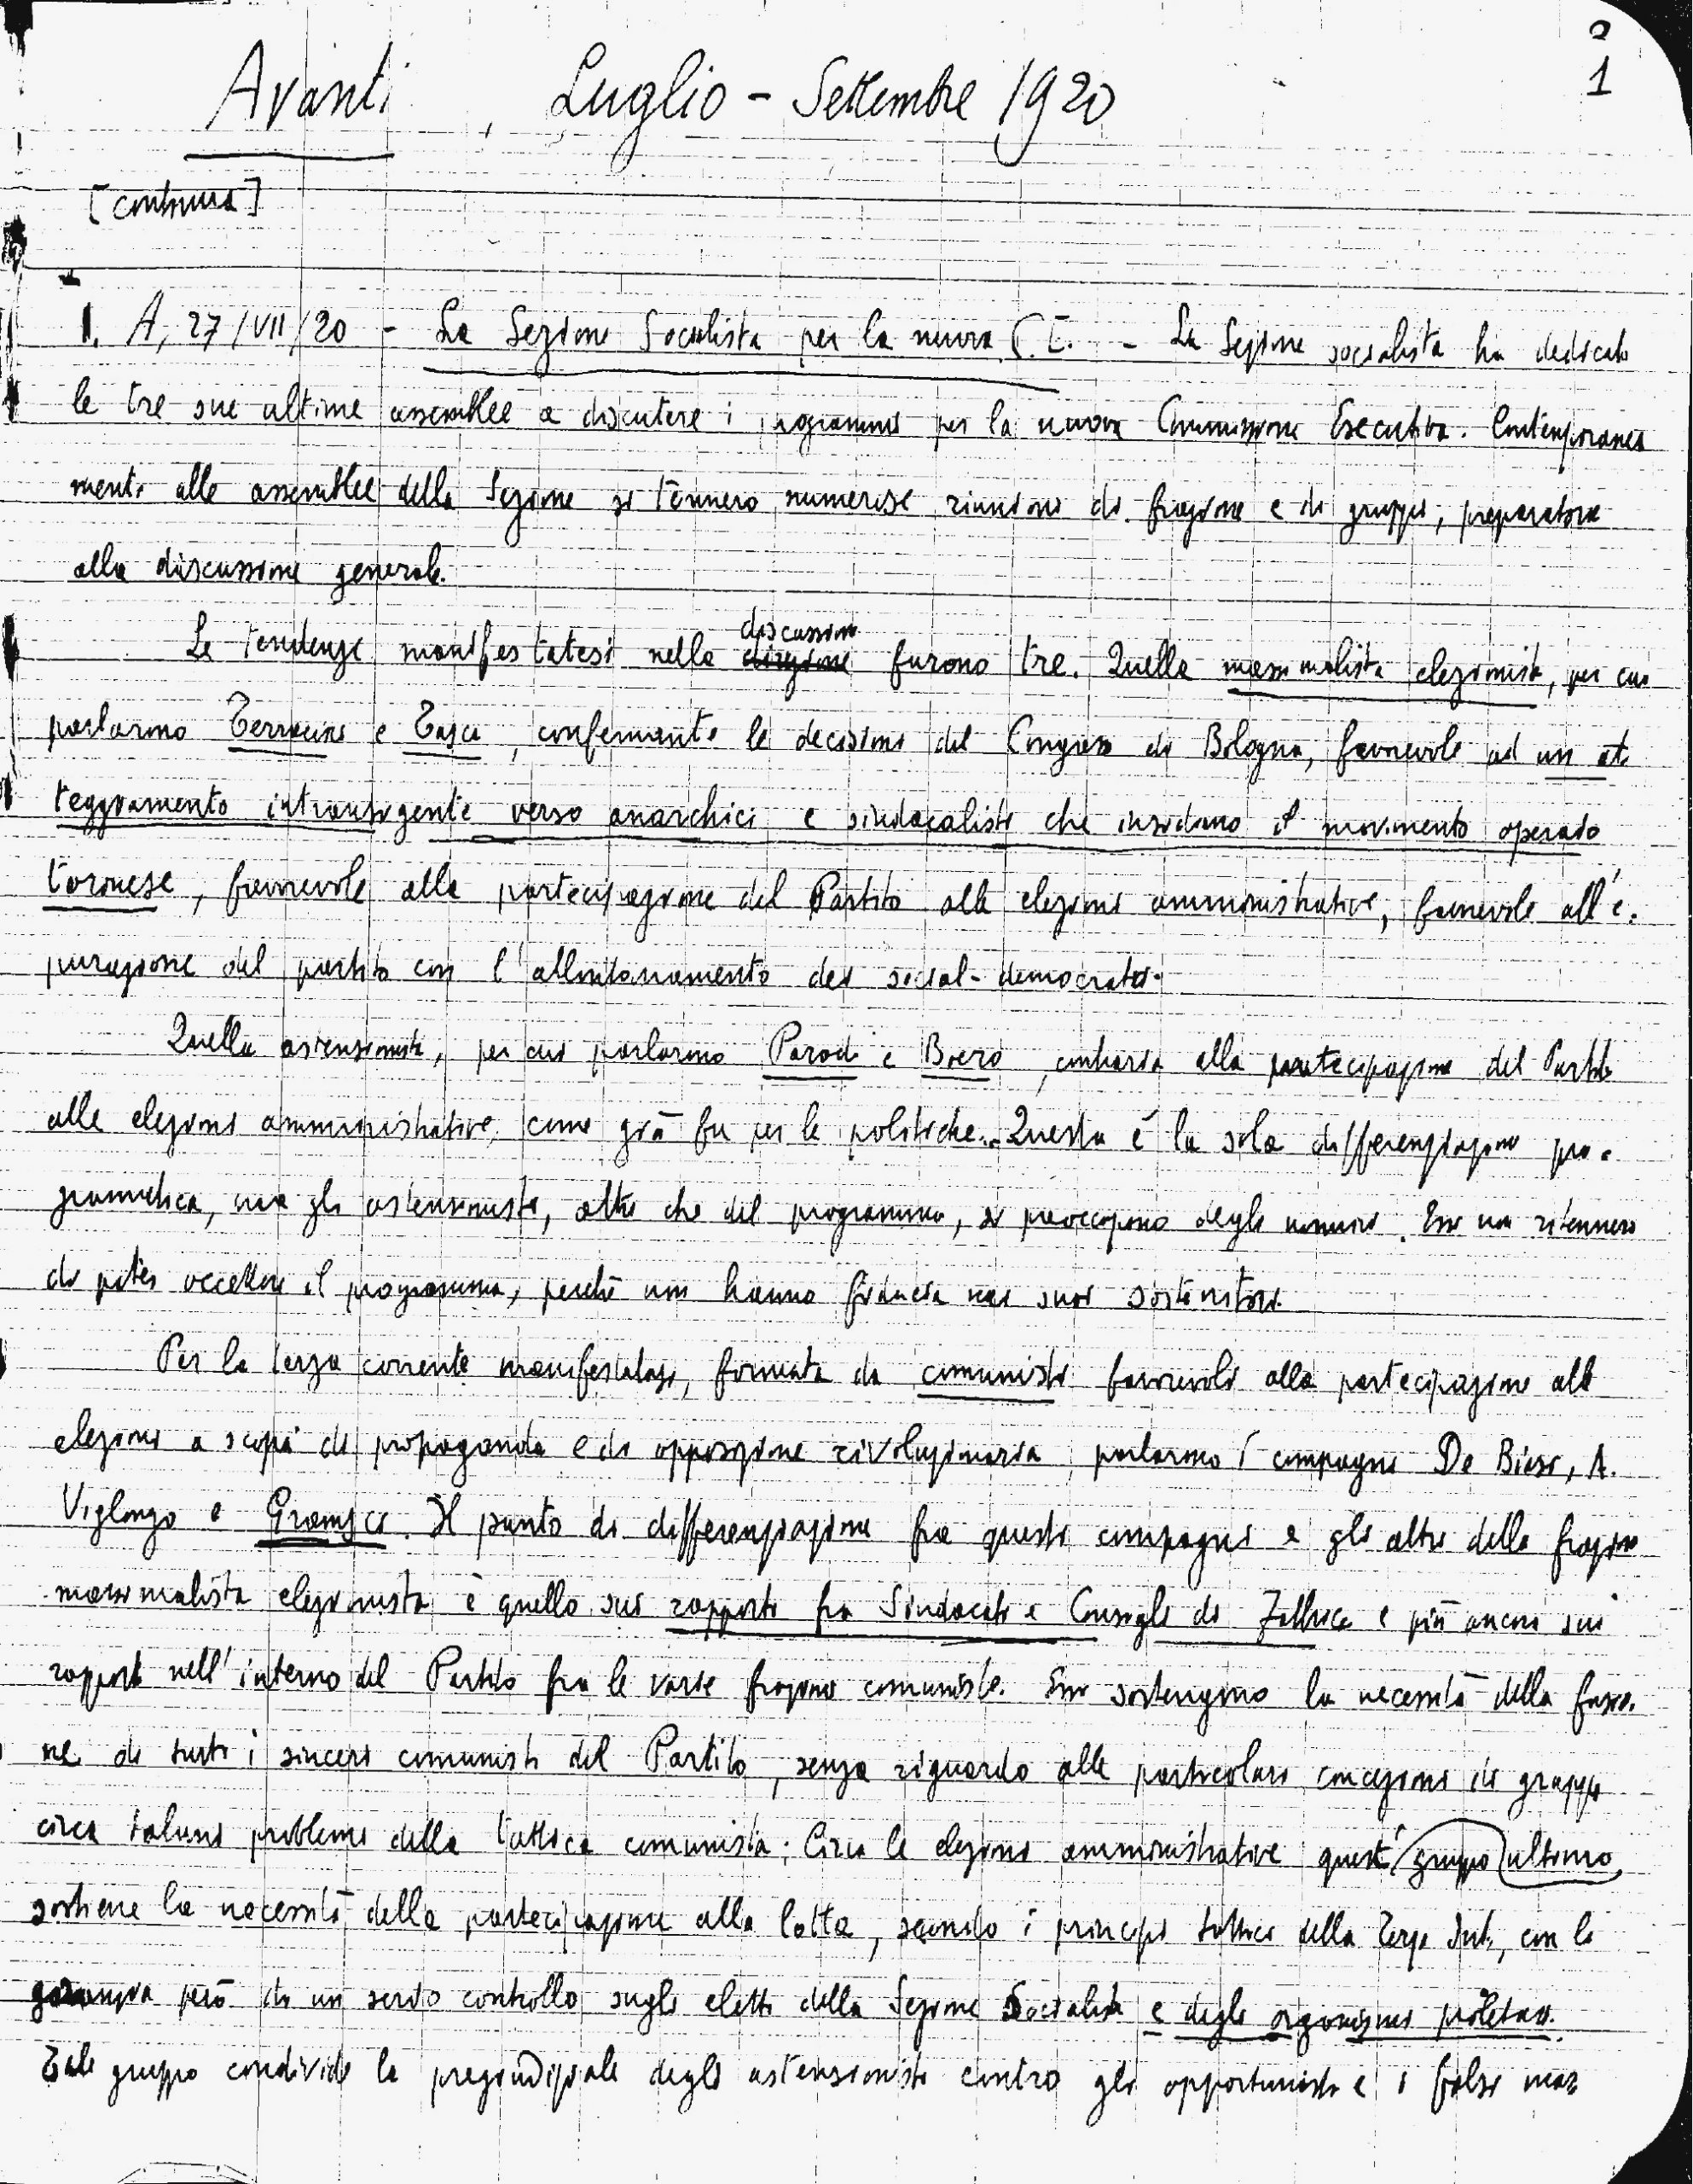 2
1
Avanti, Luglio - Settembre 1920
[continua]
1. A, 27/VII/20 - La Sezione Socialista per la nuova C.E. - La Sezione socialista ha dedicato
le tre sue ultime assemblee a discutere i programmi per la nuova Commissione Esecutiva. Contemporanea
mente alle assemblee della Sezione si tennero numerose riunioni di frazione e di gruppi, preparatorie
alla discussione generale.
Le tendenze manifestatesi nella direzione discussione furono tre. Quella massimalista elezionista, per cui
parlarono Terracini e Tasca, confermante le decisioni del Congresso di Bologna, favorevole ad un at
teggiamento intransigente verso anarchici e sindacalisti che insidiano il movimento operaio
torinese, favorevole alla partecipazione del Partito alle elezioni amministrative, favorevole all'e-
purazione del partito con l'allontanamento dei social-democratici.
Quella astensionista, per cui parlarono Parodi e Boero, contraria alla partecipazione del Partito
alle elezioni amministrative, come già fu per le politiche. Questa è la sola differenziazione pro-
grammatica, ma gli astensionisti, oltre che del programma, si preoccupano degli uomini. Essi non ritennero
di poter accettare il programma, perché non hanno fiducia nei suoi sostenitori.
Per la terza corrente manifestatasi, formata da comunisti favorevoli alla partecipazione alle
elezioni a scopi di propaganda e di opposizione rivoluzionaria, parlarono i compagni De Biasi, A.
Viglongo e Gramsci. Il punto di differenziazione fra questi compagni e gli altri della frazione
massimalista elezionista è quello sui rapporti fra Sindacati e Consigli di Fabbrica e più ancora sui
rapporti nell'interno del Partito fra le varie frazioni comuniste. Essi sostengono la necessità della fusio-
ne di tutti i sinceri comunisti del Partito, senza riguardo alle particolari concezioni di gruppo
circa taluni problemi della tattica comunista; Circa le elezioni amministrative quest' gruppo ultimo
sostiene la necessità della partecipazione alla lotta, secondo i principi tattici della Terza Int., con la
garanzia però di un serio controllo sugli eletti della Sezione Socialista e degli organismi proletari.
Tale gruppo condivide la pregiudiziale degli astensionisti contro gli opportunisti e i falsi mas